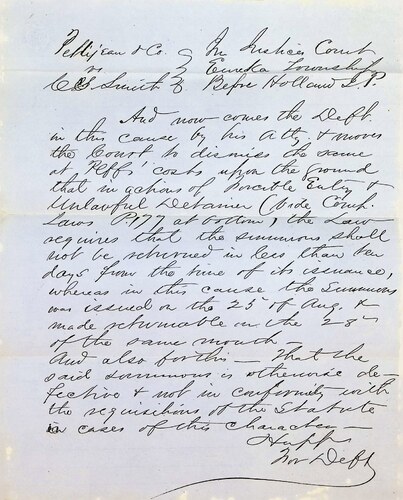 Pettijean & Co. } In Justices Court
vs } Eureka Township
C S Smith } Before Holland J. P.
And now comes the Deft.
in this cause by his Atty. & moves
the Court to dismiss the same
at Plffs' costs upon the ground
that in actions of Forcible Entry &
Unlawful Detainer (vide Comp.
Laws P 177 at bottom), the Law
requires that the summons shall
not be returned in less than ten
days from the time of its issuance,
whereas in this cause the Summons
was issued on the 25" of Aug. &
made returnable on the 28"
of the same month —
And also for this — That the
said summons is otherwise de-
fective & not in conformity with
the requisitions of the Statute
in cases of this character —
Huff
For Deft